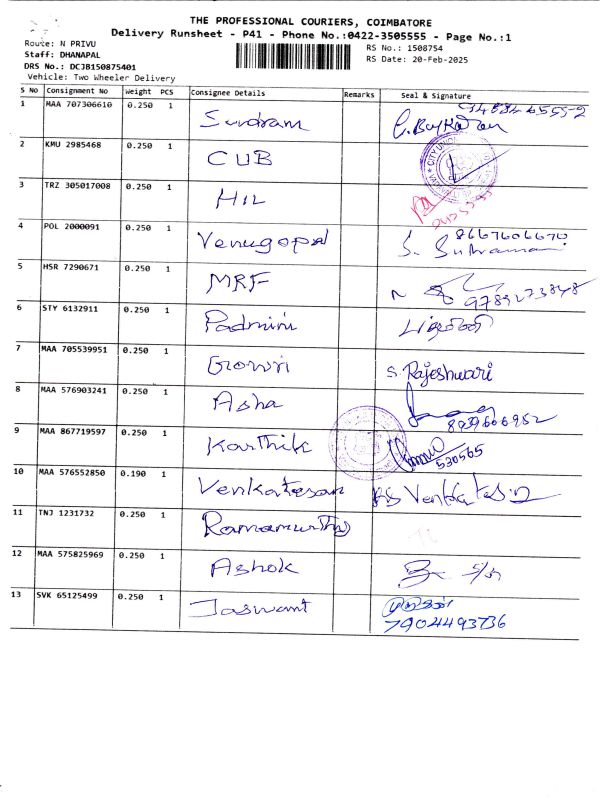 THE PROFESSIONAL COURIERS, COIMBATORE
Delivery Runsheet - P41 - Phone No.:0422-3505555 - Page No.:1
Route: N PRIVU
RS No.: 1508754
Staff: DHANAPAL
RS Date: 20-Feb-2025
DRS No.: DCJB150875401
Vehicle: Two Wheeler Delivery
S No Consignment No Weight PCS Consignee Details Remarks Seal & Signature
1 MAA 707306610 0.250 1 Sundram
2 KMU 2985468 0.250 1 CUB
CITY UNION
3 TRZ 305017008 0.250 1 HIL
4 POL 2000091 0.250 1 Venugopal 8667606670
5 HSR 7290671 0.250 1 MRF 9789273848
6 STY 6132911 0.250 1 Padmini பத்மினி
7 MAA 705539951 0.250 1 Gowri S. Rajeshwari
8 MAA 576903241 0.250 1 Asha
9 MAA 867719597 0.250 1 Karthik 530565
10 MAA 576552850 0.190 1 Venkatesan
11 TNJ 1231732 0.250 1 Ramamurthy
12 MAA 575825969 0.250 1 Ashok
13 SVK 65125499 0.250 1 Jaswant
7904493736